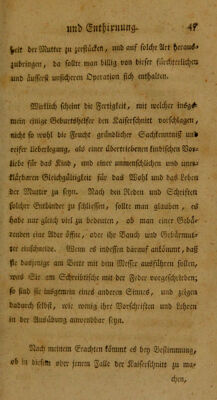 und Enthirnung. 47
heit der Mutter zu zerstücken, und auf solche Art heraus-
zubringen, da sollte man billig von dieser fürchterlichen
und äusserst unsicheren Operation sich enthalten.
Wirklich scheint die Fertigkeit, mit welcher insge-
mein einige Geburtshelfer den Kaiserschnitt vorschlagen,
nicht so wohl die Frucht gründlicher Sachkenntniß und
reifer Ueberlegung, als einer übertriebenen kindischen Vor-
liebe für das Kind, und einer unmenschlichen und uner-
klärbaren Gleichgältigkeit für das Wohl und das Leben
der Mutter zu seyn. Nach den Reden und Schriften
solcher Entbinder zu schliessen, sollte man glauben, es
habe nur gleich viel zu bedeuten, ob man einer Gebä-
renden eine Ader öffne, oder ihr Bauch und Gebärmut-
ter einschneide. Wenn es indessen darauf ankömmt, daß
sie dasjenige am Bette mit dem Messer ausführen sollen,
was Sie am Schreibtische mit der Feder vorgeschrieben,
so sind sie insgemein eines anderen Sinnes, und zeigen
dadurch selbst, wie wenig ihre Vorschriften und Lehren
in der Ausübung anwendbar seyn.
Nach meinem Erachten kömmt es bey Bestimmung,
ob in diesem oder jenem Falle der Kaiserschnitt zu ma-
chen,